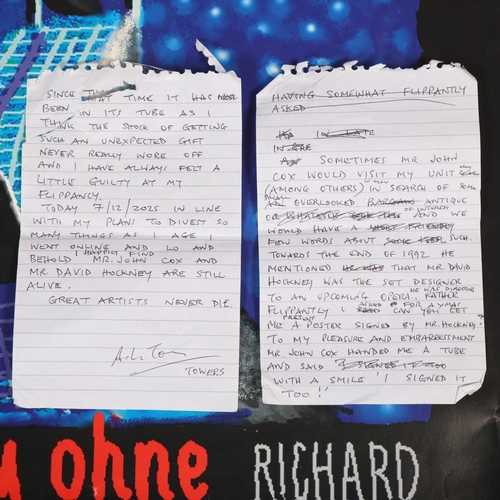 SINCE THAT TIME IT HAS
BEEN IN ITS TUBE AS I
THINK THE SHOCK OF GETTING
SUCH AN UNEXPECTED GIFT
NEVER REALLY WORE OFF
AND I HAVE ALWAYS FELT A
LITTLE GUILTY AT MY
FLIPPANCY.
TODAY 7/12/2025 IN LINE
WITH MY PLANS TO DIVEST SO
MANY THINGS AS I AGE
WENT ONLINE AND LO AND
BEHOLD I HAPPILY FIND MR. JOHN COX AND
MR DAVID HOCKNEY ARE STILL
ALIVE.
GREAT ARTISTS NEVER DIE.
TOWERS
HAVING SOMEWHAT FLIPPANTLY
ASKED
IN LATE
SOMETIMES MR. JOHN
COX WOULD VISIT MY UNIT
(AMONG OTHERS) IN SEARCH OF SOME
SMALL OVERLOOKED BARGAIN ANTIQUE
OR WHATEVER OF INTEREST AND WE
WOULD HAVE A SHORT FRIENDLY
FEW WORDS ABOUT SUCH.
TOWARDS THE END OF 1992 HE
MENTIONED HE WAS THAT MR DAVID
HOCKNEY WAS THE SET DESIGNER
TO AN UPCOMING OPERA HE WAS DIRECTING. RATHER
FLIPPANTLY I ASKED CAN YOU GET
ME A POSTER SIGNED BY MR. HOCKNEY
FOR A XMAS PRESENT
TO MY PLEASURE AND EMBARRASSMENT
MR. JOHN COX HANDED ME A TUBE
AND SAID "I SIGNED IT TOO
WITH A SMILE 'I SIGNED IT
TOO!'
u ohne
RICHARD